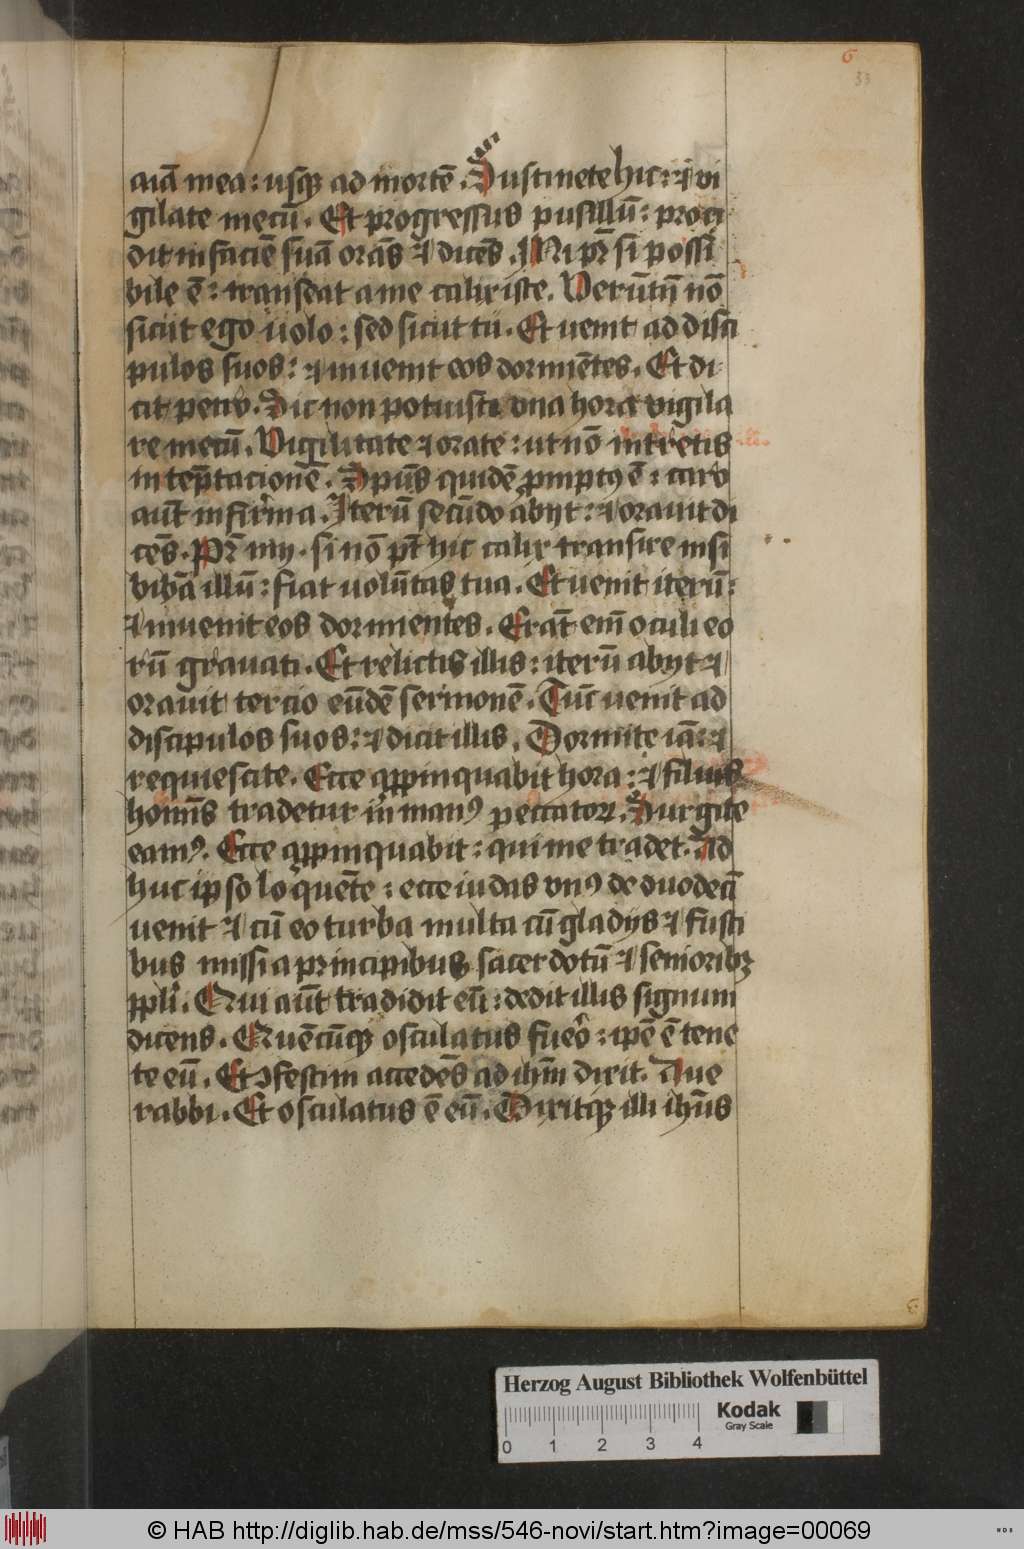 6
33
aīa mea: usq; ad mortē. Sustinete hic: ⁊ vi
gilate mecū. Et progressus pusillū: proci
dit in faciē suā orās ⁊ dicēs. Mi pr̄ si possi
bile ē: transeat a me calix iste. Verūtn̄ nō
sicut ego uolo: sed sicut tu. Et uenit ad disci
pulos suos: ⁊ inuenit eos dormiētes. Et di
cit petro. Sic non potuistis vna hora vigila
re mecū. Vigilitate ⁊ orate: ut nō intretis
in tēptacionē. Spūs quidē promptꝰ ē: caro
aūt infirma. Iterū secūdo abijt: ⁊ orauit di
cēs. Pr̄ mij. si nō pt̄ hic calix transire nisi
bibā illū: fiat uolūtas tua. Et uenit iterū:
⁊ inuenit eos dormientes. Erāt em̄ oculi eo
rū grauati. Et relictis illis: iterū abijt ⁊
orauit tercio eūdē sermonē. Tūc uenit ad
discipulos suos: ⁊ dicit illis. Dormite iā: ⁊
requiescite. Ecce appropinquabit hora: ⁊ filius
homīs tradetur in manꝰ peccatoꝝ. Surgite
eamꝰ. Ecce appropinquabit: qui me tradet. Ad
huc ipso loquēte: ecce iudas vnꝰ de duodecī
uenit ⁊ cū eo turba multa cū gladijs ⁊ fusti
bus missi a principibus sacerdotū ⁊ senioribꝫ
ppli. Qui aūt tradidit eū: dedit illis signum
dicens. Quēcūq; osculatus fuero: ipē ē tene
te eū. Et ꝯfestim accedēs ad ihm̄ dixit. Aue
rabbi. Et osculatus ē eū. Dixitq; illi ihūs
6.
Herzog August Bibliothek Wolfenbüttel
Kodak
Gray Scale
0 1 2 3 4
© HAB http://diglib.hab.de/mss/546-novi/start.htm?image=00069